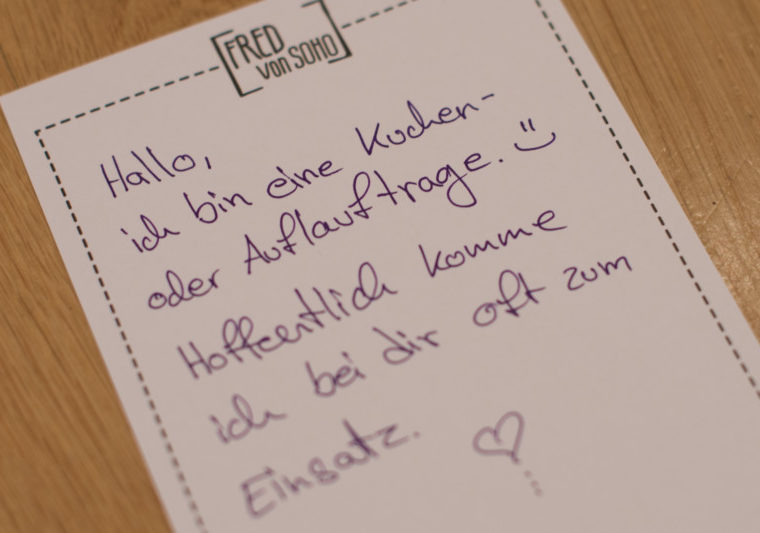 FRED
von SOHO
Hallo,
ich bin eine Kuchen-
oder Auflauftrage. :)
Hoffentlich komme
ich bei dir oft zum
Einsatz. ♡